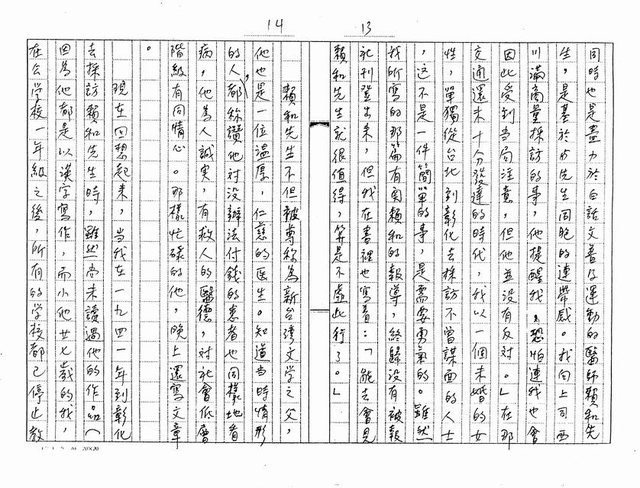 13
同時也是盡力於白話文普及運動的醫師賴和先
生，是基於於先生同胞的連帶感。我向上司西
川滿商量採訪的事，他提醒我，恐怕連我也會
因此受到當局注意，但他並沒有反對。」在那
交通還未十分發達的時代，我以一個未婚的女
性，單獨從台北到彰化去採訪不曾謀面的人士
，這不是一件簡單的事，是需要勇氣的。雖然
我所寫的那篇有關賴和的報導，終歸沒有被報
社刊登出來，但我在書裡也寫着：「能去會見
賴和先生就很值得，算是不虛此行了。」
14
賴和先生不但被尊稱為新台灣文學之父，
他也是一位溫厚，仁慈的医生。知道當時情形
的人，都稱讚他對沒辦法付錢的患者也同樣地看
病，他為人誠実，有救人的醫德，対社會低層
階級有同情心。那樣忙碌的他，晚上還寫文章
。
現在回想起來，當我在一九四一年到彰化
去採訪賴和先生時，雖然尚未讀過他的作品（
因為他都是以漢字寫作，而小他廿七歲的我，
在公學校一年級之後，所有的學校都已停止教
20×20